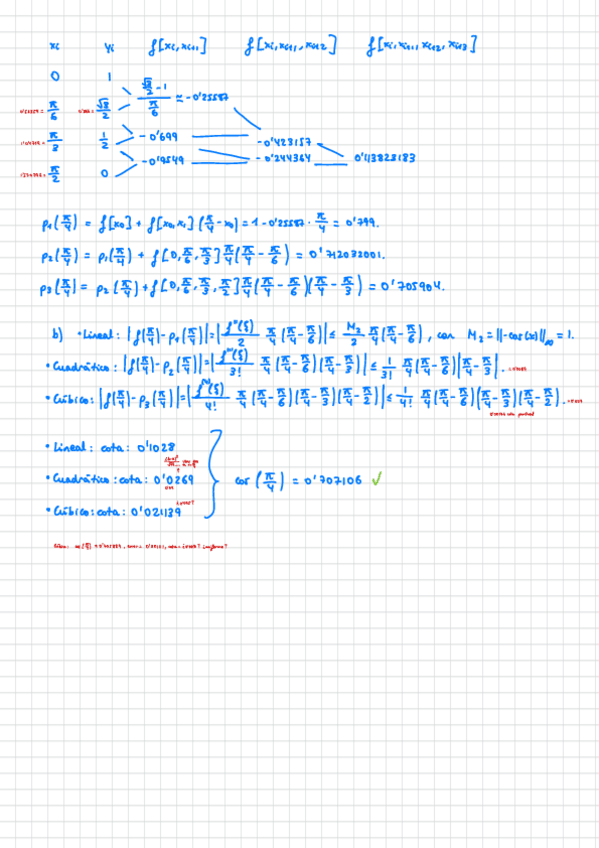 xᵢ yᵢ f[xᵢ,xᵢ₊₁] f[xᵢ,xᵢ₊₁,xᵢ₊₂] f[xᵢ,xᵢ₊₁,xᵢ₊₂,xᵢ₊₃]
0 1
(√3/2 - 1)/(π/6) ≈ -0'25587
π/6 √3/2
-0'699 -0'423157
π/3 1/2
-0'9549 -0'244364 0'113823183
π/2 0
p₁(π/4) = f[x₀] + f[x₀,x₁](π/4 - x₀) = 1 - 0'25587 · π/4 = 0'799.
p₂(π/4) = p₁(π/4) + f[0, π/6, π/3] π/4 (π/4 - π/6) = 0'712032001.
p₃(π/4) = p₂(π/4) + f[0, π/6, π/3, π/2] π/4 (π/4 - π/6)(π/4 - π/3) = 0'705904.
b) • Lineal: |f(π/4) - p₁(π/4)| = |f''(ξ)/2 π/4 (π/4 - π/6)| ≤ M₂/2 π/4 (π/4 - π/6), con M₂ = ||-cos(x)||∞ = 1.
• Cuadrático: |f(π/4) - p₂(π/4)| = |f'''(ξ)/3! π/4 (π/4 - π/6)(π/4 - π/3)| ≤ 1/3! π/4 (π/4 - π/6)|π/4 - π/3|.
• Cúbico: |f(π/4) - p₃(π/4)| = |f⁽ᴵⱽ⁾(ξ)/4! π/4 (π/4 - π/6)(π/4 - π/3)(π/4 - π/2)| ≤ 1/4! π/4 (π/4 - π/6)(π/4 - π/3)(π/4 - π/2).
• Lineal: cota: 0'1028
• Cuadrático: cota: 0'0269 cos(π/4) = 0'707106 ✓
• Cúbico: cota: 0'021139